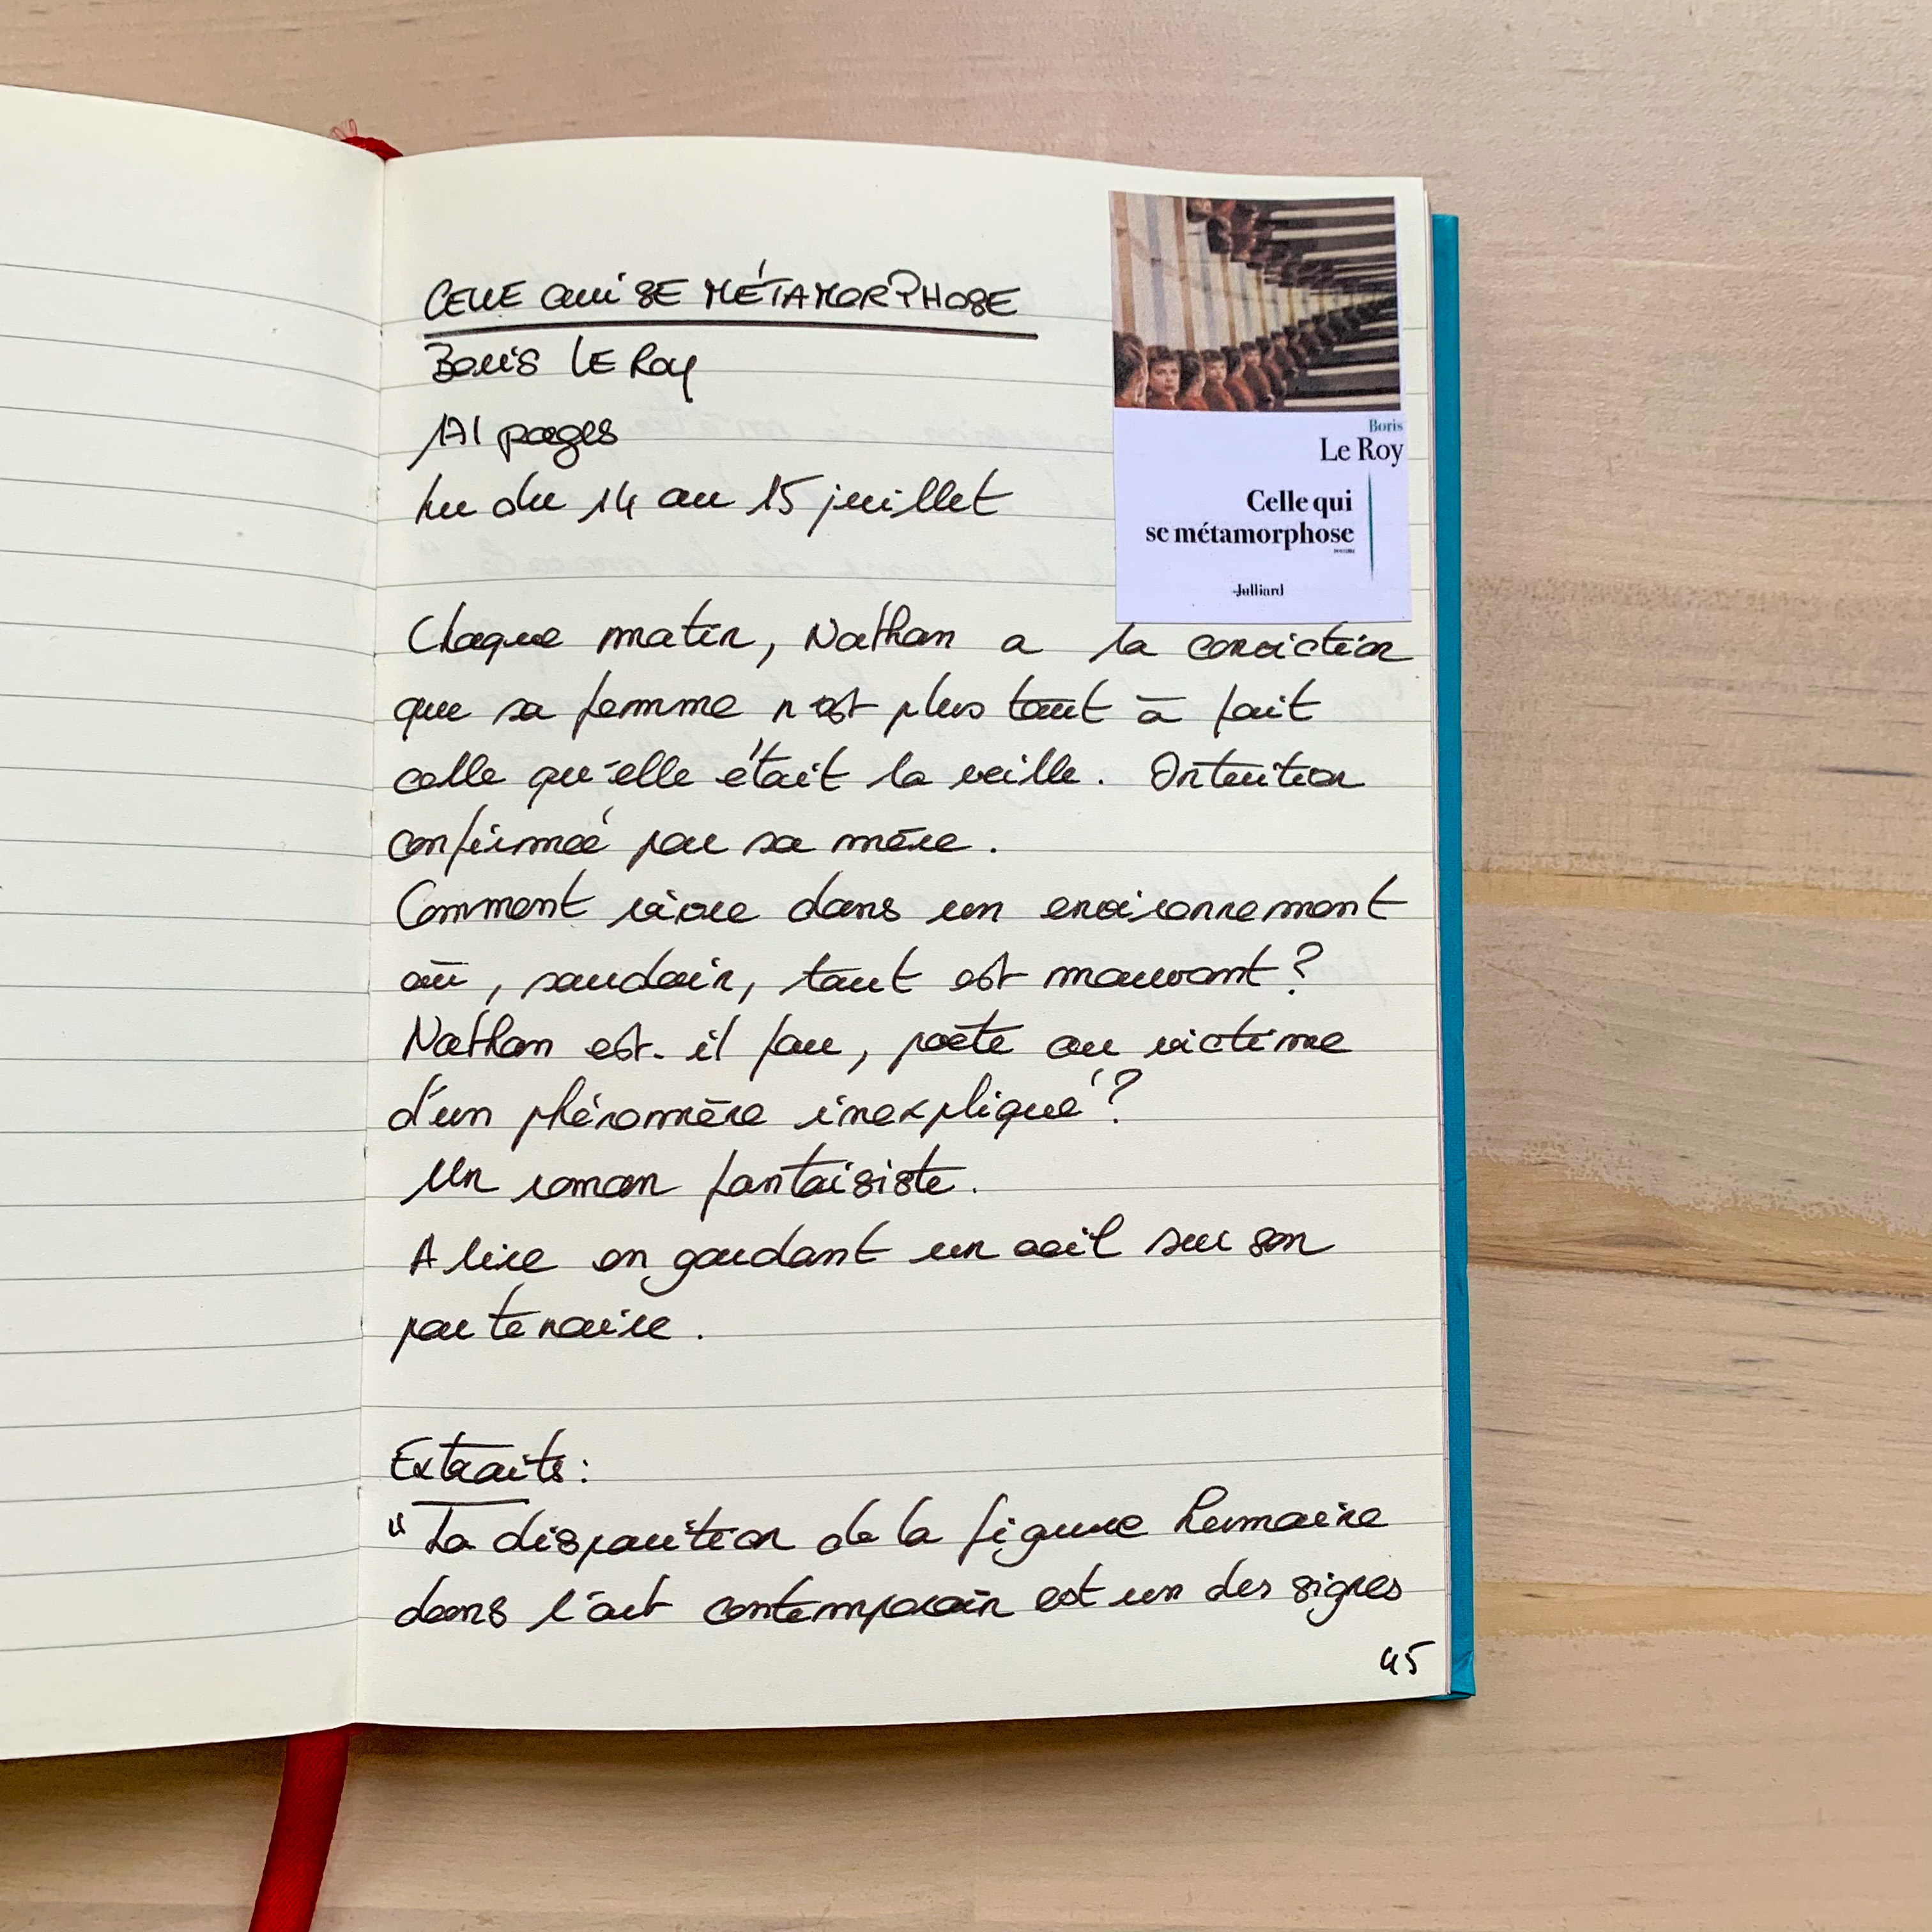 CELLE QUI SE MÉTAMORPHOSE
Boris LE Roy
171 pages
Lu du 14 au 15 juillet
Boris
Le Roy
Celle qui
se métamorphose
roman
Julliard
Chaque matin, Nathan a la conviction
que sa femme n'est plus tout à fait
celle qu'elle était la veille. Intuition
confirmée par sa mère.
Comment vivre dans un environnement
où, soudain, tout est mouvant ?
Nathan est-il fou, poète ou victime
d'un phénomène inexpliqué ?
Un roman fantaisiste.
A lire en gardant un oeil sur son
partenaire.
Extraits :
"La disparition de la figure humaine
dans l'art contemporain est un des signes
45